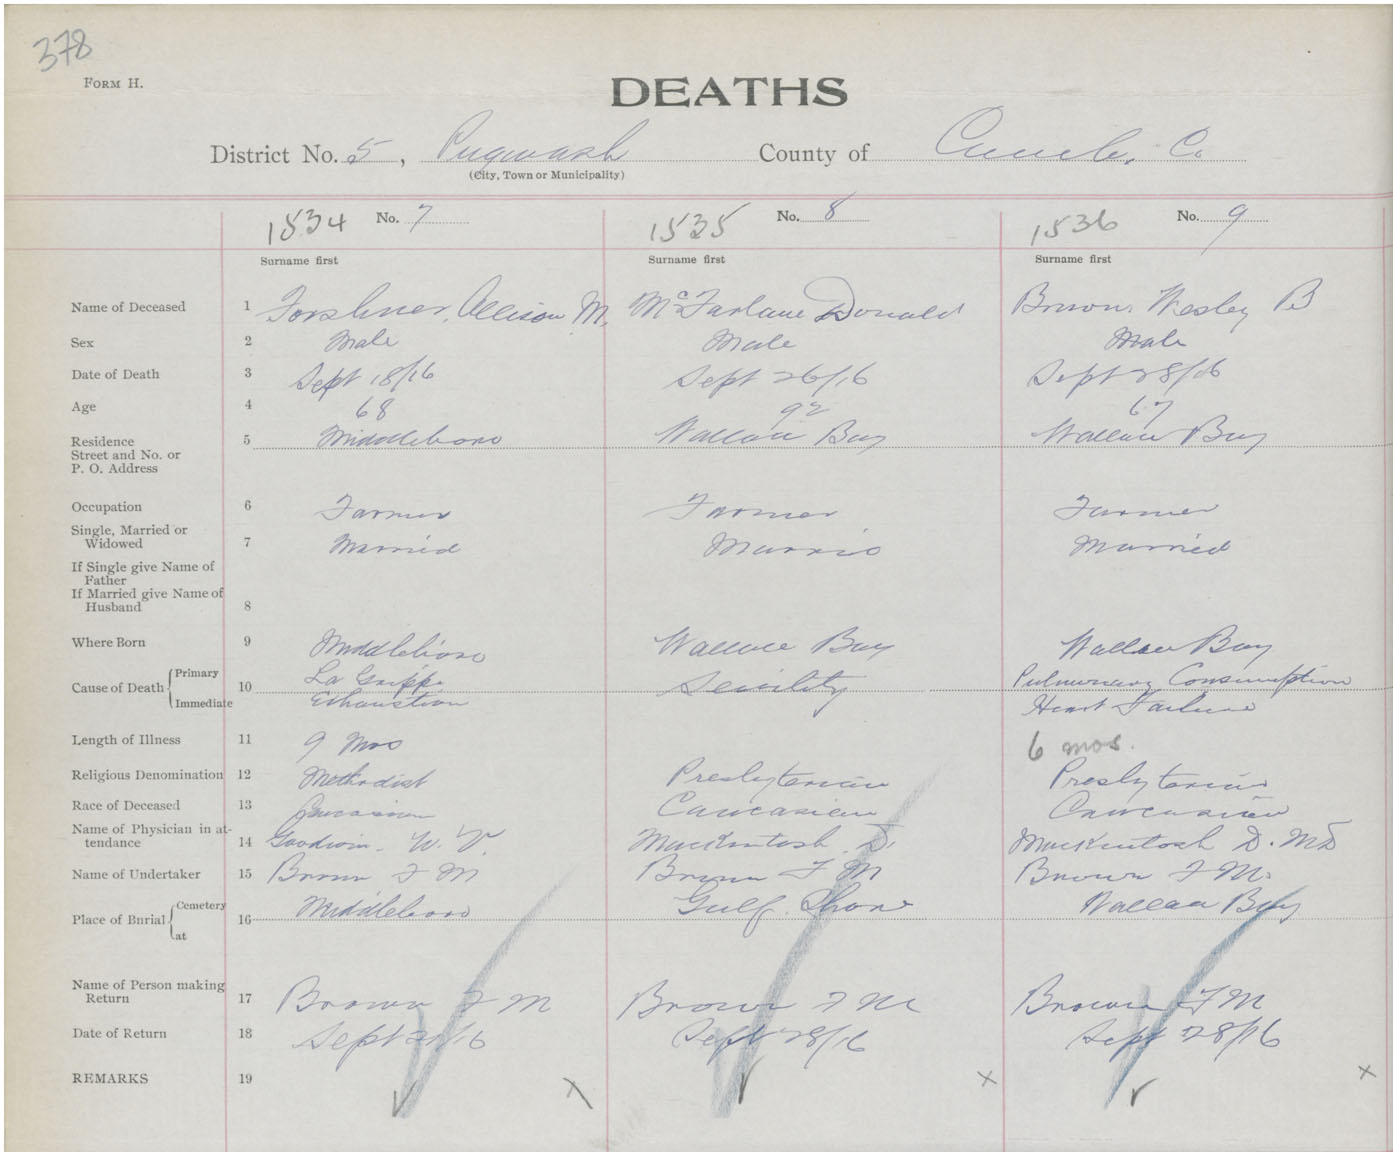 378
FORM H.
DEATHS
District No. 5, Pugwash County of Cumb. Co
(City, Town or Municipality)
1534 No. 7 1535 No. 8 1536 No. 9
Surname first Surname first Surname first
Name of Deceased 1 Forshner, Allison M. McFarlane Donald Brown, Wesley B
Sex 2 Male Male Male
Date of Death 3 Sept 18/16 Sept 26/16 Sept 28/16
Age 4 68 92 67
Residence 5 Middleboro Wallace Bay Wallace Bay
Street and No. or
P. O. Address
Occupation 6 Farmer Farmer Farmer
Single, Married or
Widowed 7 Married Married
If Single give Name of
Father
If Married give Name of
Husband 8
Where Born 9 Middleboro Wallace Bay Wallace Bay
Cause of Death { Primary 10 La Grippe Senility Pulmonary Consumption
Immediate Exhaustion Heart Failure
Length of Illness 11 9 Mos 6 mos.
Religious Denomination 12 Methodist Presbyterian Presbyterian
Race of Deceased 13 Caucasian Caucasian Caucasian
Name of Physician in at-
tendance 14 Goodwin, W. V. MacKintosh, D. MacKintosh D. MD
Name of Undertaker 15 Brown F M Brown F M Brown F M.
Place of Burial { Cemetery 16 Middleboro Gulf Shore Wallace Bay
at
Name of Person making
Return 17 Brown F M Brown F M Brown F M
Date of Return 18 Sept 21/16 Sept 28/16 Sept 28/16
REMARKS 19